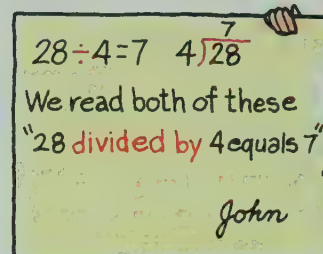 28÷4=7 4)28 7
We read both of these
"28 divided by 4 equals 7"
John